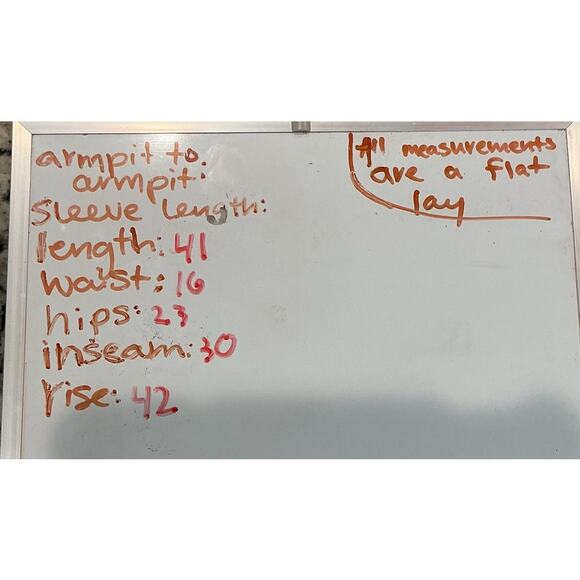 armpit to
armpit:
Sleeve Length:
length: 41
waist: 16
hips: 23
inseam: 30
rise: 42
All measurements
are a flat
lay